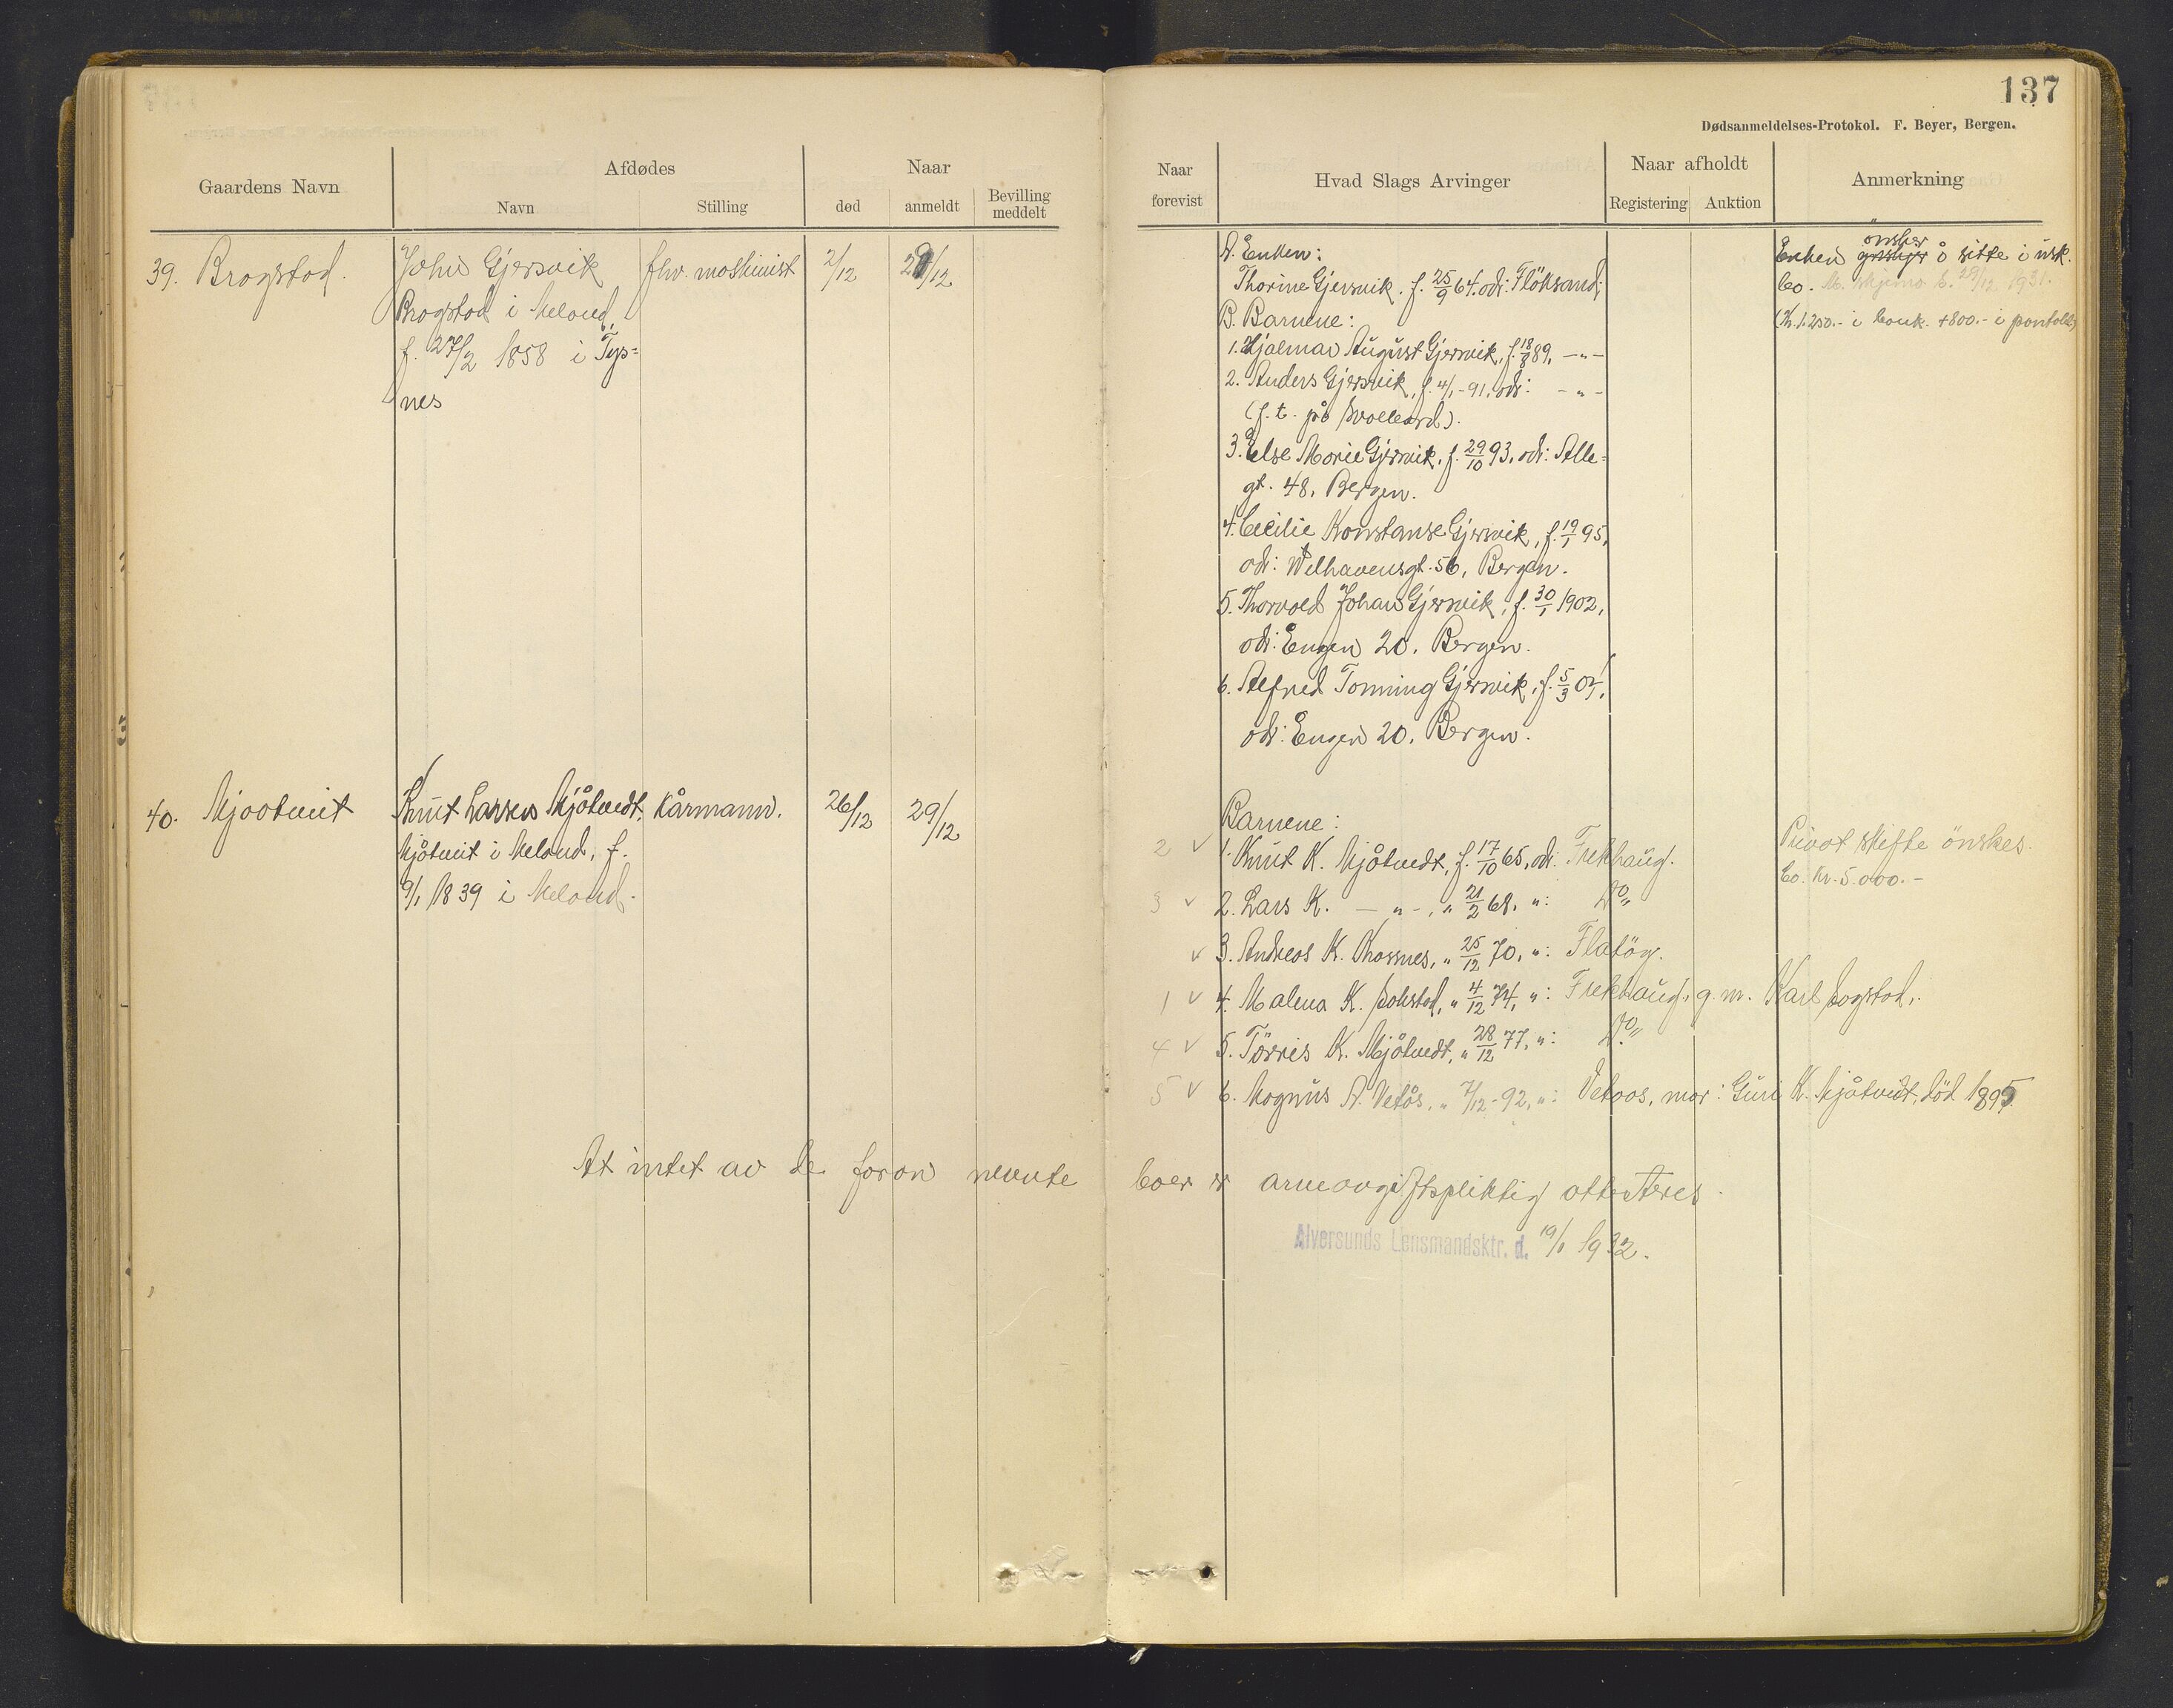 137
Dødsanmeldelses-Protokol. F. Beyer, Bergen.
Gaardens Navn
Afdødes
Navn
Stilling
Naar
død
anmeldt
Bevilling
meddelt
Naar
forevist
Hvad Slags Arvinger
Naar afholdt
Registering
Auktion
Anmerkning
39. Brogstad.
Johan Gjersvik
Brogstad i Meland,
f. 27/2 1858 i Tys=
nes
fhv. maskinist
2/12
29/12
A. Enken:
Thorine Gjersvik. f. 25/9 64. adr: Flöksand;
B. Barnene:
1. Hjalmar August Gjersvik, f. 18/8 89, —"—
2. Anders Gjersvik, f. 4/1-91, adr: —"—
(f. t. på Svalbard).
3. Else Marie Gjersvik, f. 29/10 93, adr: Alle=
gt. 48, Bergen.
4. Cecilie Konstanse Gjersvik, f. 19/1 95,
adr: Welhavensgt. 56, Bergen.
5. Thorvald Johan Gjersvik, f. 30/1 1902,
adr: Engen 20, Bergen.
6. Alfred Tonning Gjersvik, f. 5/3 07,
adr: Engen 20, Bergen.
önsker
Enken å sitte i usk.
bo. 29/12 1931.
(Kr. 1.250.- i bank. +800.- i pantobl.)
40. Mjaatveit
Knut Larsen Mjåtvedt,
Mjåtveit i Meland, f.
9/1 1839 i Meland.
kårmann.
26/12
29/12
Barnene:
2 ✓ 1. Knut K. Mjåtvedt, f. 17/10 65, adr: Frekhaug.
3 ✓ 2. Lars K. —"—, " 21/2 68, ": Do"
✓ 3. Andreas K. Rossnes, " 25/12 70, ": Flatöy.
1 ✓ 4. Malena K. Sagstad, " 4/12 74, ": Frekhaug, g. m. Karl Sagstad,.
4 ✓ 5. Törris K. Mjåtvedt, " 28/12 77, ": Do"
5 ✓ 6. Magnus A. Vetås, " 7/12-92, ": Vetaas, mor: Guri K. Mjåtveit, död 1895
Privat skifte önskes.
bo. Kr. 5.000.-
At intet av de foran nevnte boer er arveavgiftspliktig attesteres.
Alversunds Lensmandsktr. d. 19/1 1932.